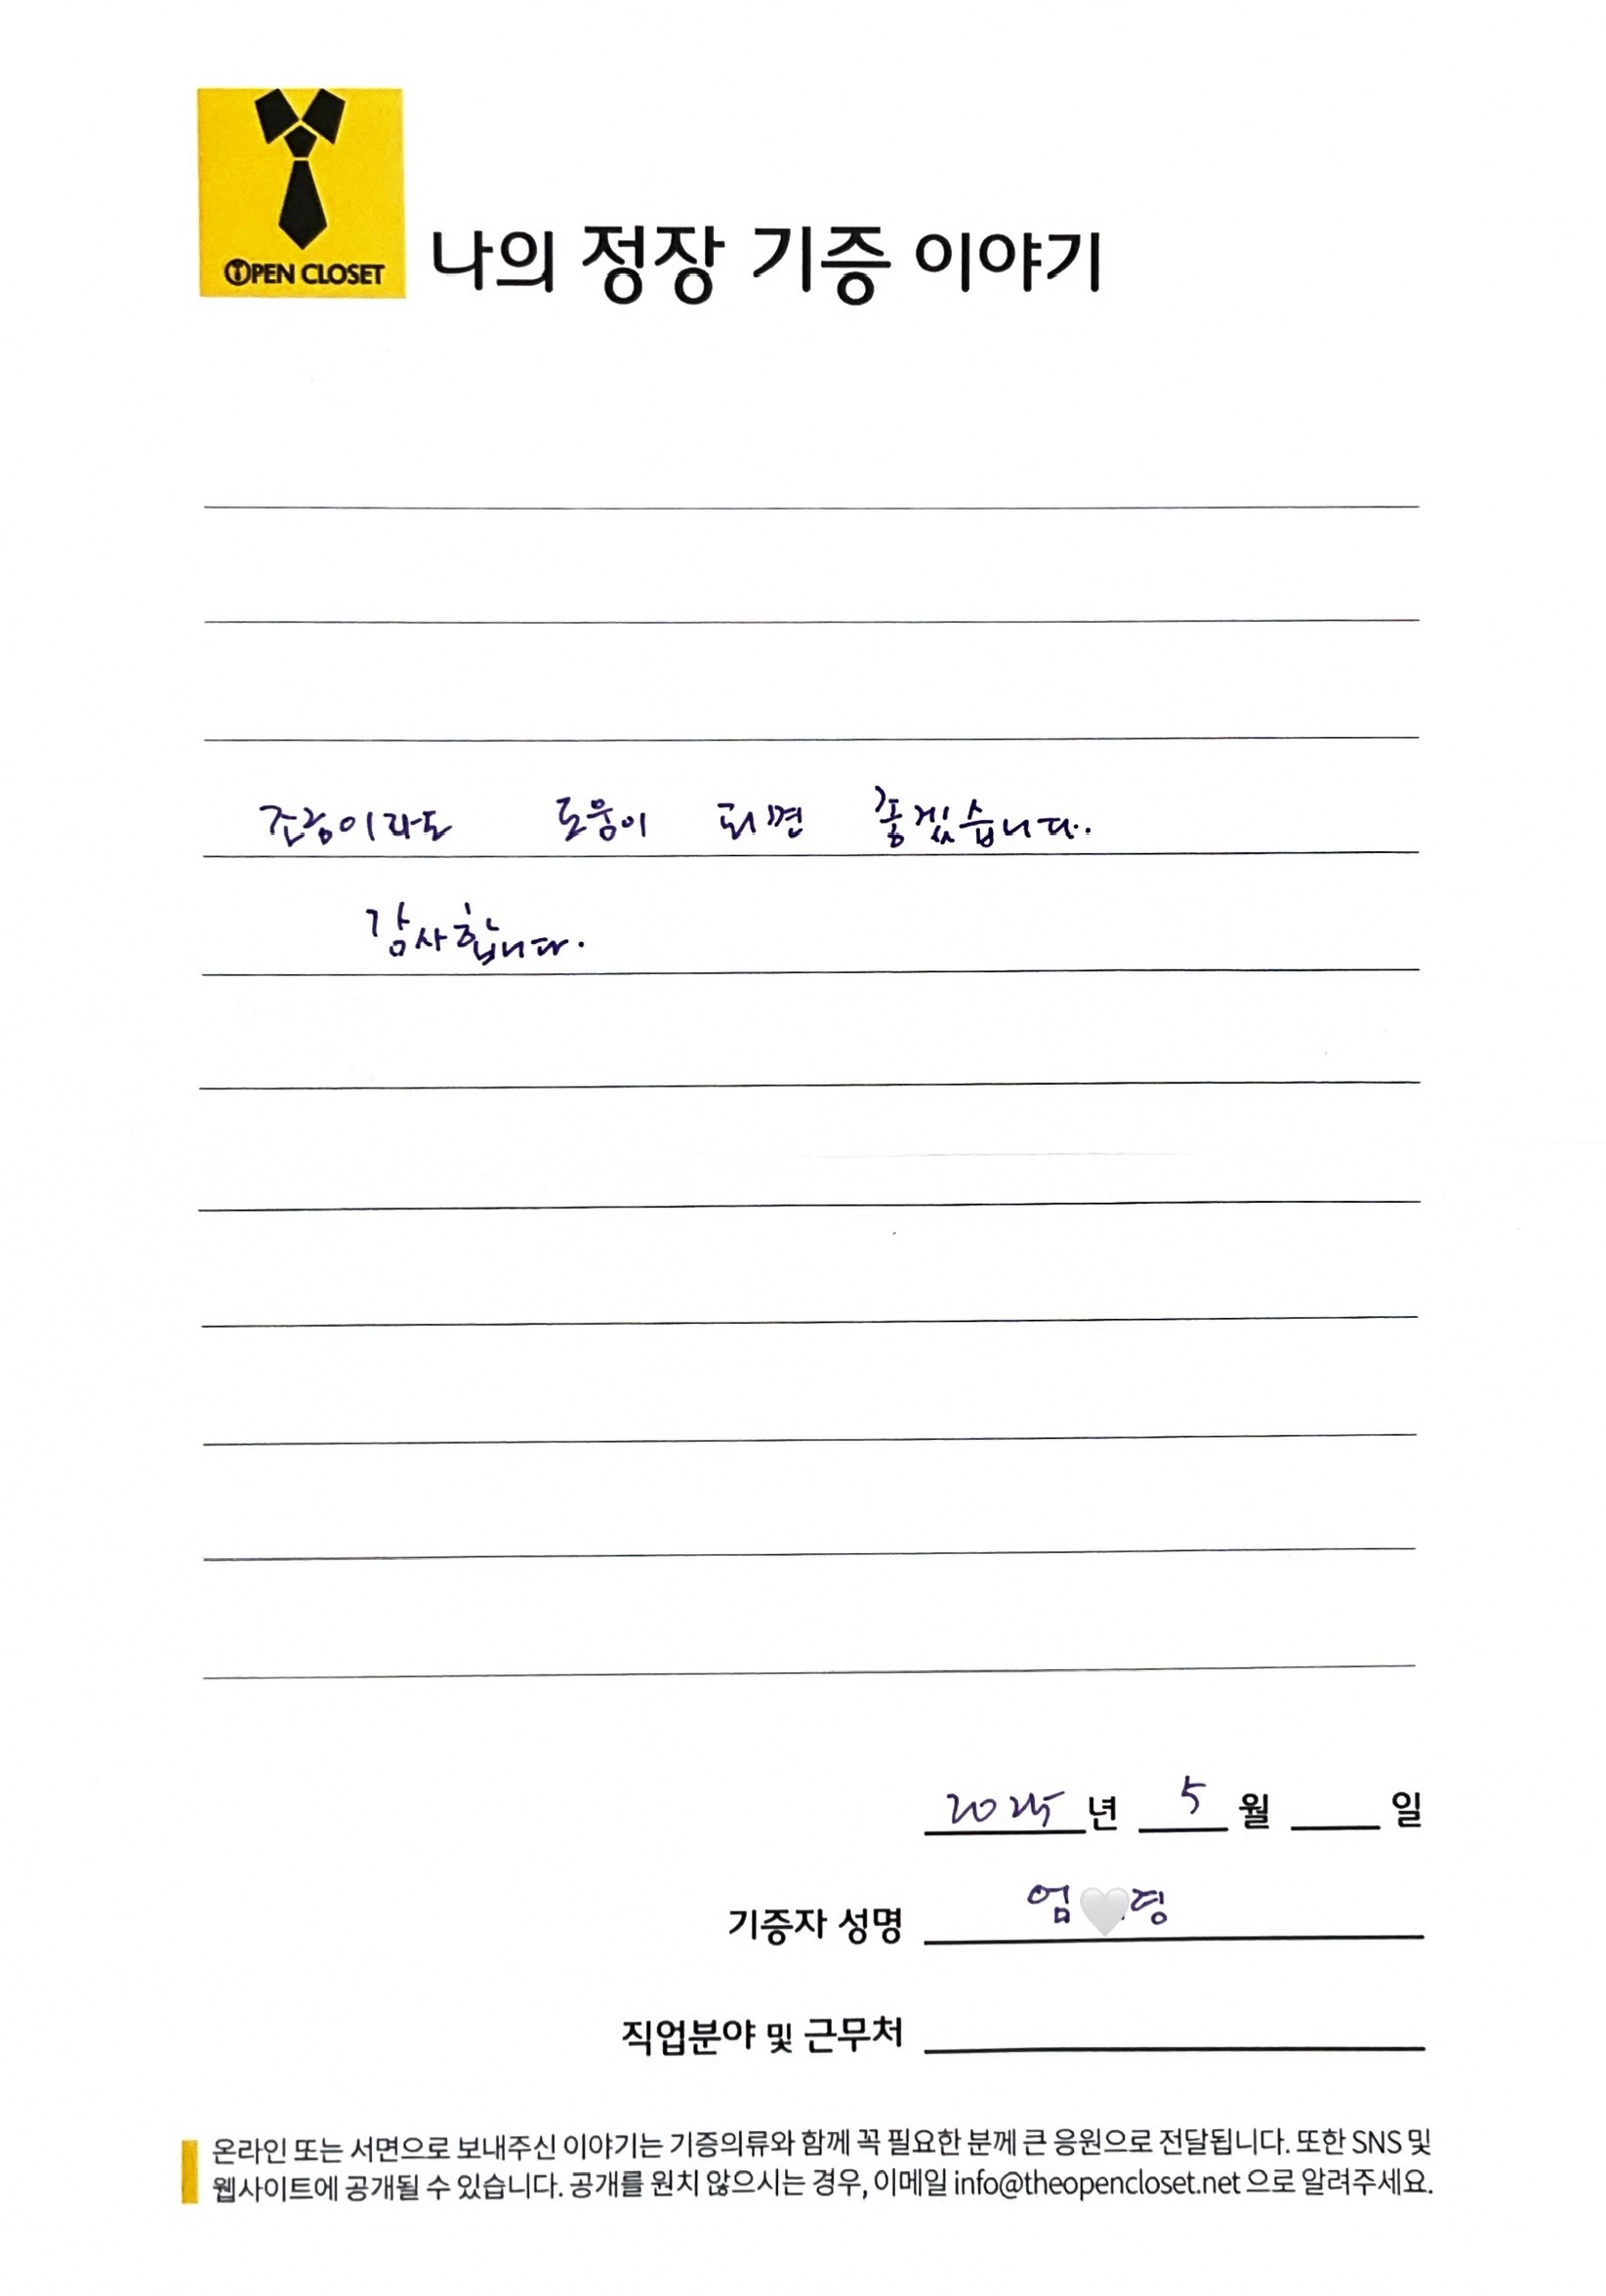 OPEN CLOSET
나의 정장 기증 이야기
조금이라도 도움이 되면 좋겠습니다.
감사합니다.
2025 년 5 월 일
기증자 성명 엄 영
직업분야 및 근무처
온라인 또는 서면으로 보내주신 이야기는 기증의류와 함께 꼭 필요한 분께 큰 응원으로 전달됩니다. 또한 SNS 및
웹사이트에 공개될 수 있습니다. 공개를 원치 않으시는 경우, 이메일 info@theopencloset.net 으로 알려주세요.